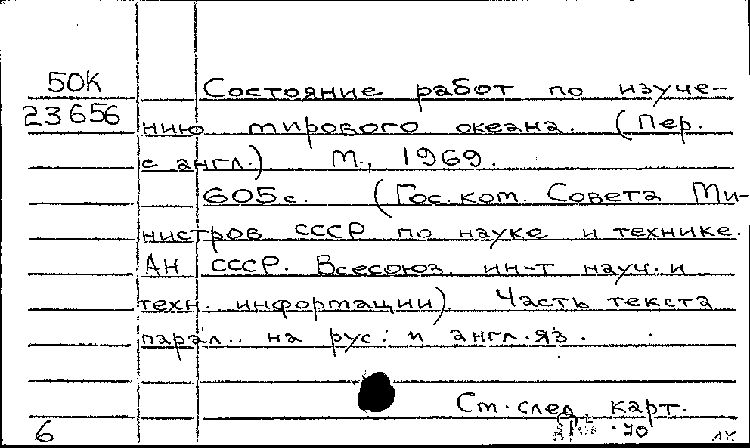 50К
23656
Состояние работ по изуче-
нию мирового океана. (Пер.
с англ.) М., 1969.
605с. (Гос.ком. Совета Ми-
нистров СССР по науке и технике.
АН СССР. Всесоюз. ин-т науч. и
техн. информации). Часть текста
парал. на рус. и англ. яз.
См. след. карт.
6
70